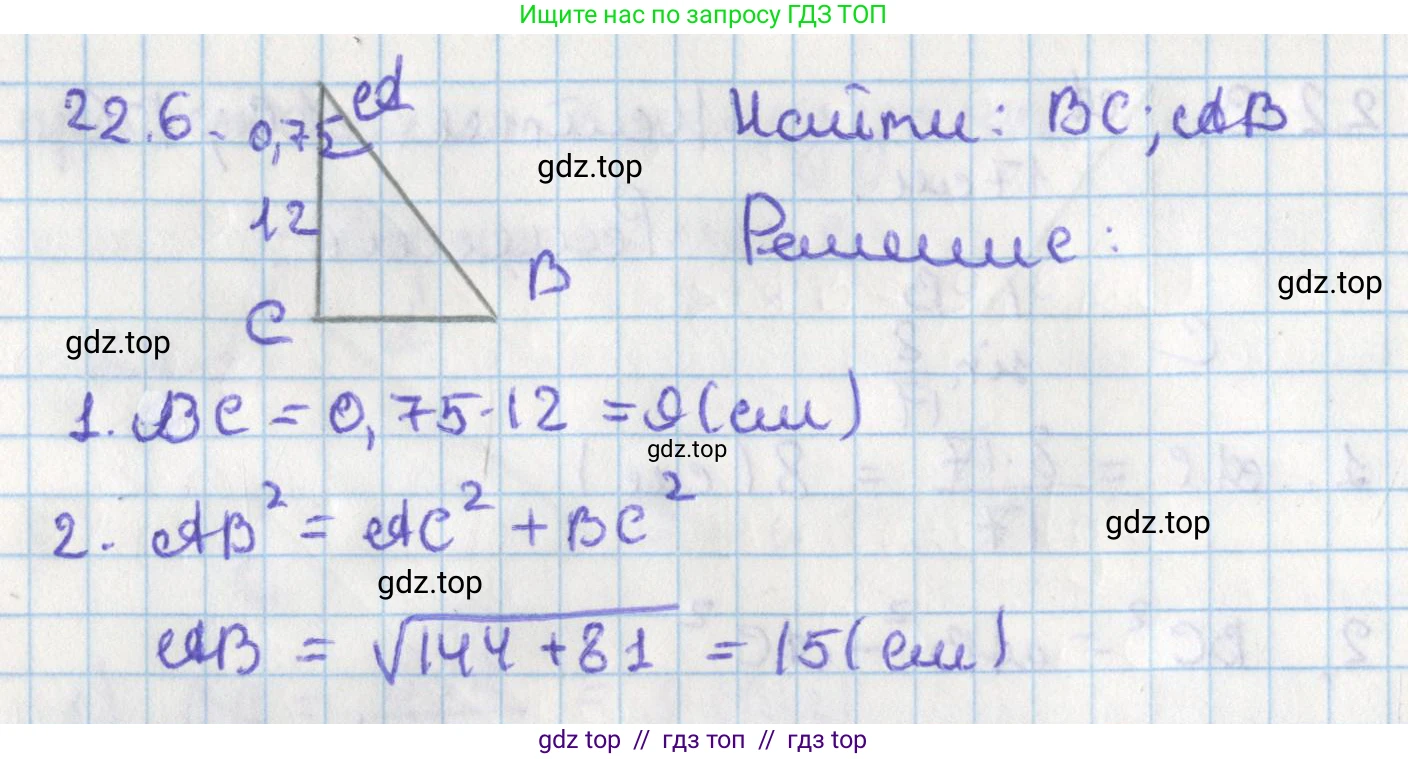 Ищите нас по запросу ГДЗ ТОП
22.6. 0,75 A
Найти: BC; AB
gdz.top
12
Решение:
B
gdz.top
C
gdz.top
1. BC = 0,75·12 = 9 (см)
gdz.top
2. AB² = AC² + BC²
gdz.top
gdz.top
AB = √144 + 81 = 15 (см)
gdz top // гдз топ // гдз top